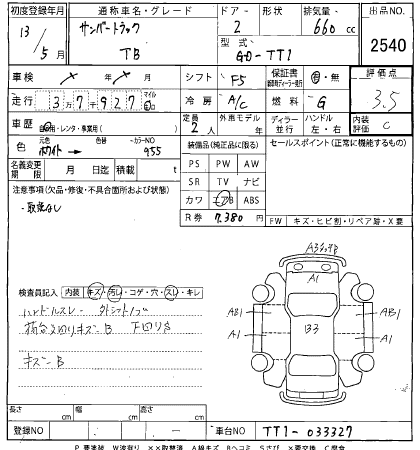 初度登録年月 通称車名・グレード ドアー 形状 排気量 出品NO.
13 / 5 月 サンバートラック TB 2 660 cc 2540
型式 GD-TT1
車検 シフト F5 保証書 有・無 評価点
走行 37927 冷房 A/C 燃料 G 3.5
車歴 自家用・レンタ・事業用( ) 定員 2人 外車モデル 年 ディーラー 並行 ハンドル 左・右 内装評価 C
色 元色 ホワイト → 色替 カラーNO 955
装備品(純正品に限る) セールスポイント(正常に機能するもの)
名義変更期限 月 日迄 積載 t
PS PW AW
SR TV ナビ
カワ エアB ABS
R券 7,380 円
FW キズ・ヒビ割・リペア跡・X要
注意事項(欠品・修復・不具合箇所および状態)
・取説なし
検査員記入 内装・キズ・汚レ・コゲ・穴・スレ・キレ
ハンドルスレ
キズB 下回り
キズ B
A1
AB1
A1
B3
AB1
A1
長さ cm 幅 cm 高さ cm
登録NO 車台NO TT1-033327
P要塗装 W波有り XX取替済 A線キズ Bヘコミ Sさび X要交換 C腐食